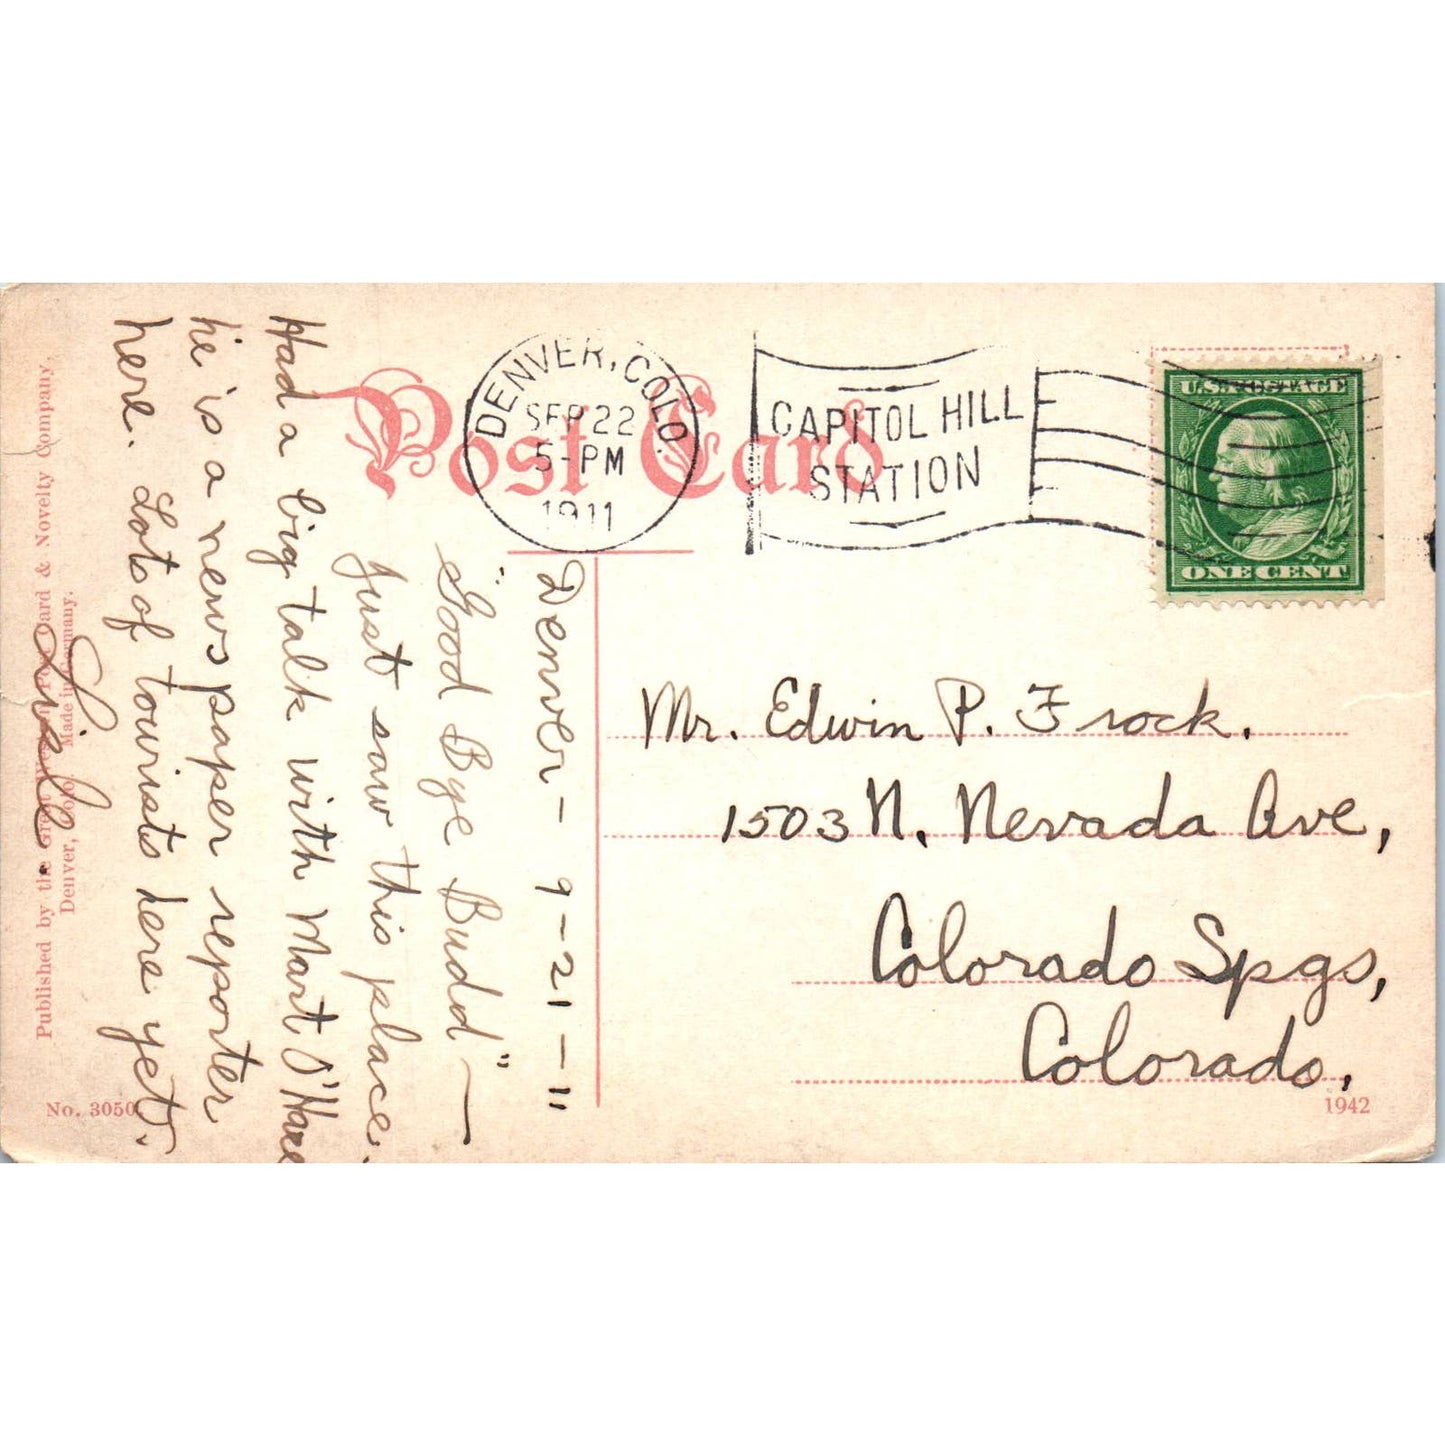 Post Card
DENVER, COLO.
SEP 22
5-PM
1911
CAPITOL HILL
STATION
U.S. POSTAGE
ONE CENT
Denver - 9-21-11
"Good Bye Budd" —
Just saw this place.
Had a big talk with Mart O'Hare
he is a news paper reporter
here. Lots of tourists here yet.
Mr. Edwin P. Frock.
1503 N. Nevada Ave,
Colorado Spgs,
Colorado.
Published by the Great Western Post Card & Novelty Company,
Denver, Colo. Made in Germany.
No. 3050
1942